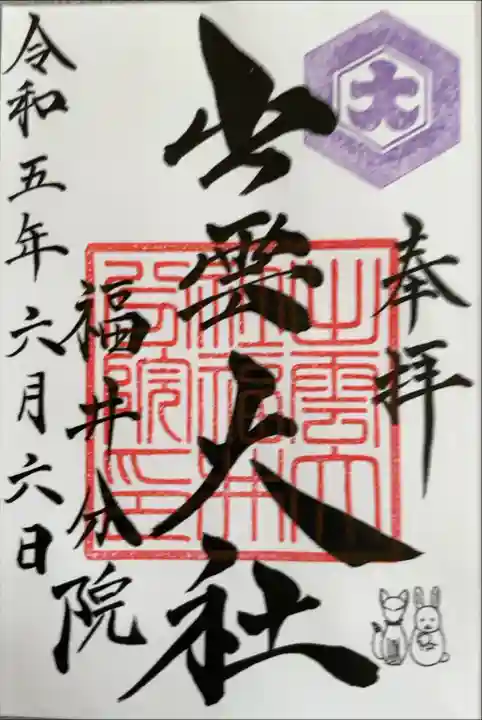 奉拝
大
出雲大社
福井分院
令和五年六月六日
出雲大
社福井
分院印